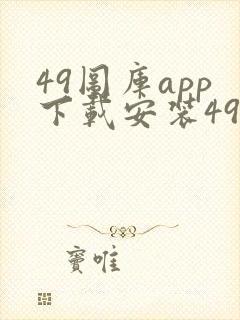 49圖库app
下載安装49
窦唯